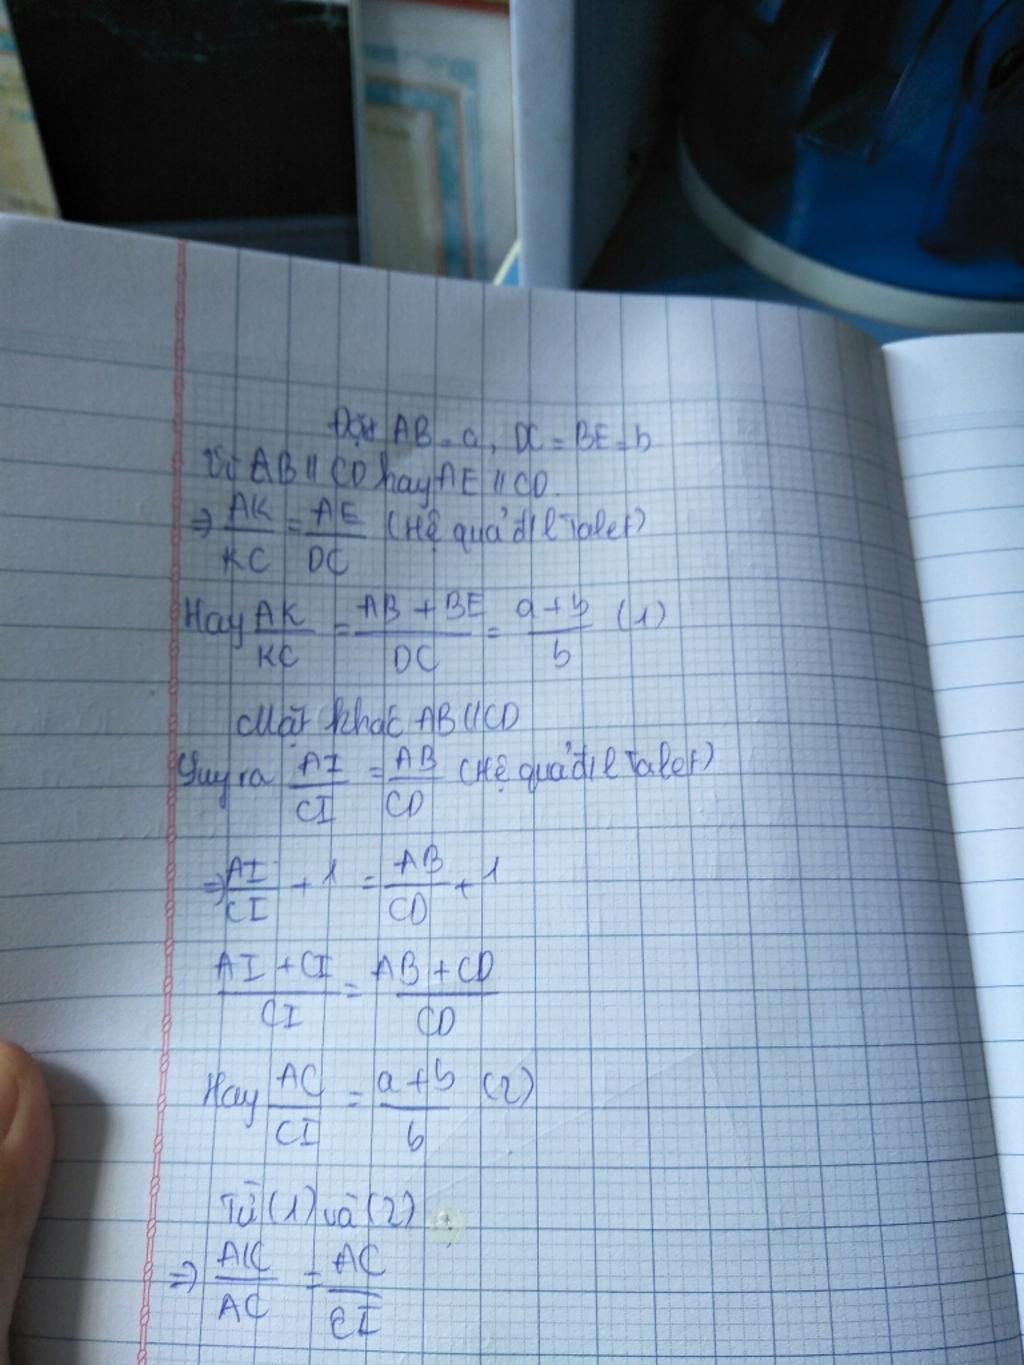 Đặt AB = a, DC = BE = b
Vì AB // CD hay AE // CD.
⇒ AK/KC = AE/DC (Hệ quả đ/l Talet)
Hay AK/KC = (AB + BE)/DC = (a + b)/b (1)
Mặt khác AB // CD
Suy ra AI/CI = AB/CD (Hệ quả đ/l Talet)
⇒ AI/CI + 1 = AB/CD + 1
(AI + CI)/CI = (AB + CD)/CD
Hay AC/CI = (a + b)/b (2)
Từ (1) và (2)
⇒ AK/AC = AC/CI